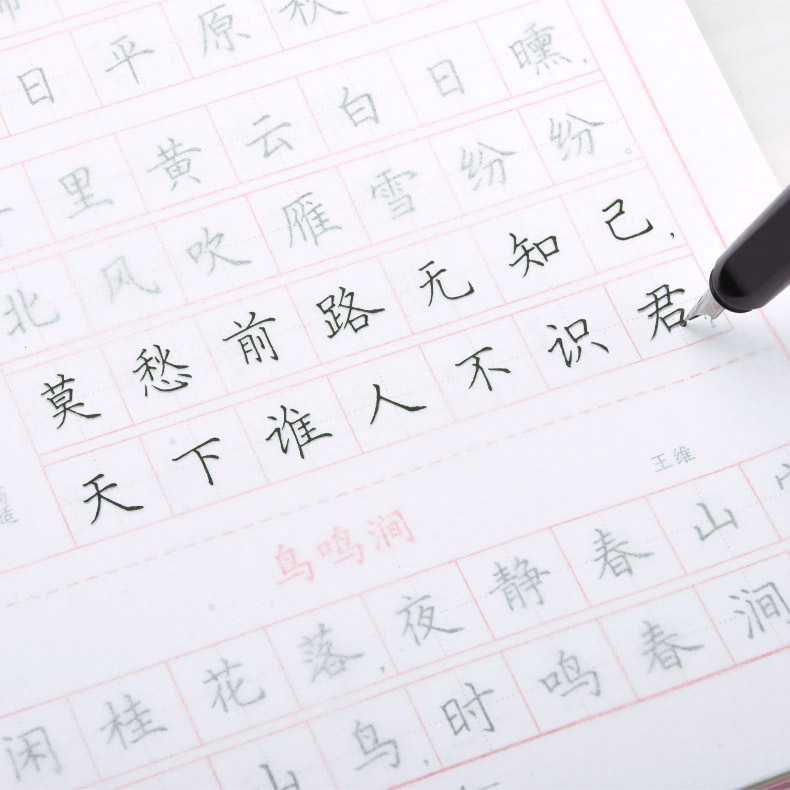 日平原秋
里黄云白日曛，
北风吹雁雪纷纷。
莫愁前路无知己，
天下谁人不识君
适
王维
鸟鸣涧
闲桂花落，夜静春山
山鸟，时鸣春涧